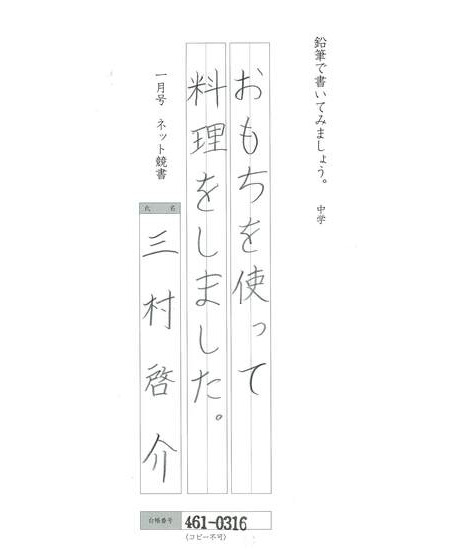 鉛筆で書いてみましょう。 中学
おもちを使って
料理をしました。
一月号 ネット競書
氏名
三村啓介
台帳番号 461-0316
(コピー不可)